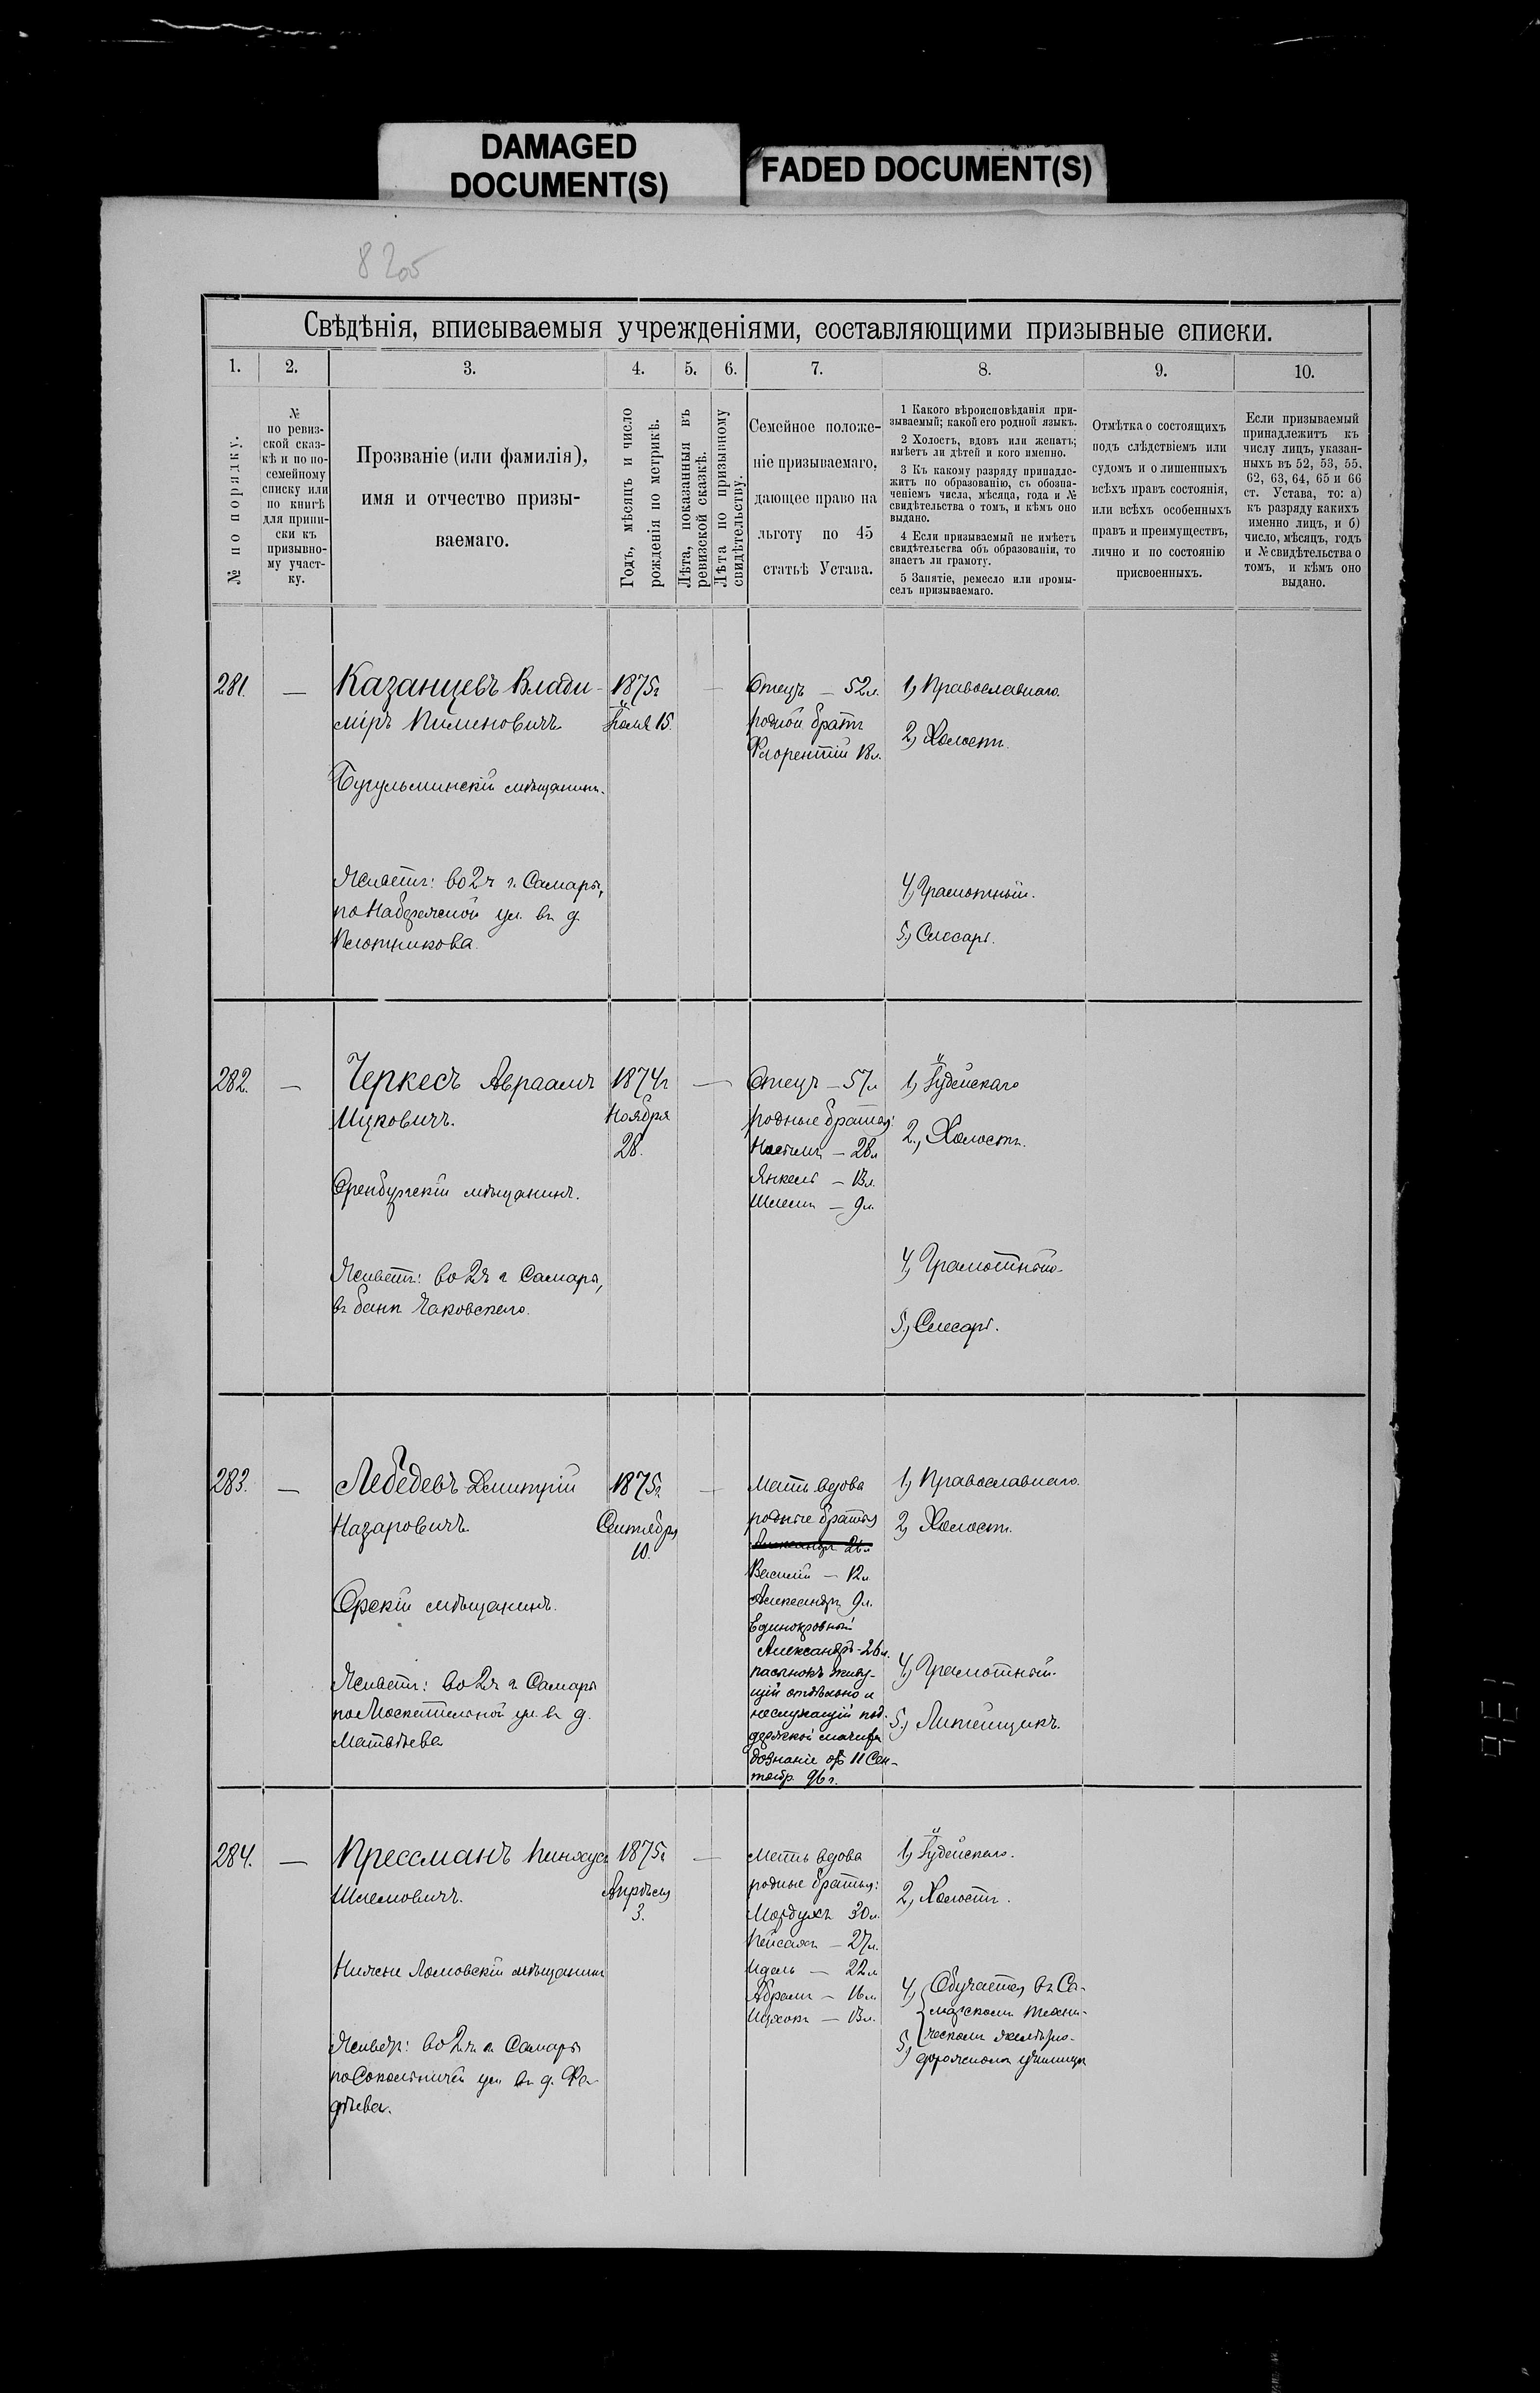 DAMAGED
DOCUMENT(S)
FADED DOCUMENT(S)
8205
Свѣдѣнія, вписываемыя учрежденіями, составляющими призывные списки.
1. 2. 3. 4. 5. 6. 7. 8. 9. 10.
№ по порядку.
№
по ревиз-
ской сказ-
кѣ и по по-
семейному
списку или
по книгѣ
для припи-
ски къ
призывно-
му участ-
ку.
Прозваніе (или фамилія),
имя и отчество призы-
ваемаго.
Годъ, мѣсяцъ и число
рожденія по метрикѣ.
Лѣта, показанныя въ
ревизской сказкѣ.
Лѣта по призывному
свидѣтельству.
Семейное положе-
ніе призываемаго,
дающее право на
льготу по 45
статьѣ Устава.
1 Какого вѣроисповѣданія при-
зываемый; какой его родной языкъ.
2 Холостъ, вдовъ или женатъ;
имѣетъ ли дѣтей и кого именно.
3 Къ какому разряду принадле-
житъ по образованію, съ обозна-
ченіемъ числа, мѣсяца, года и №
свидѣтельства о томъ, и кѣмъ оно
выдано.
4 Если призываемый не имѣетъ
свидѣтельства объ образованіи, то
знаетъ ли грамоту.
5 Занятіе, ремесло или промы-
селъ призываемаго.
Отмѣтка о состоящихъ
подъ слѣдствіемъ или
судомъ и о лишенныхъ
всѣхъ правъ состоянія,
или всѣхъ особенныхъ
правъ и преимуществъ,
лично и по состоянію
присвоенныхъ.
Если призываемый
принадлежитъ къ
числу лицъ, указан-
ныхъ въ 52, 53, 55,
62, 63, 64, 65 и 66
ст. Устава, то: а)
къ разряду какихъ
именно лицъ, и б)
число, мѣсяцъ, годъ
и № свидѣтельства о
томъ, и кѣмъ оно
выдано.
281. —
Казанцевъ Влади-
міръ Пименовичъ
Бугульминскій мѣщанинъ.
Живетъ: во 2 ч г. Самары,
по Набережной ул. въ д.
Плотникова.
1875 г
Іюля 15.
—
Отецъ — 52 л.
родной братъ
Флорентій 18 л.
1, Православнаго.
2, Холостъ.
4, Грамотный.
5, Слесарь.
282. —
Черкесъ Авраамъ
Ицковичъ.
Оренбургскій мѣщанинъ.
Живетъ: во 2 ч г Самары,
въ банѣ Чаковскаго.
1874 г
Ноября
28.
—
Отецъ — 57 л
родные братья:
— 28 л
Янкель — 13 л.
Шлема — 9 л.
1, Іудейскаго
2, Холостъ.
4, Грамотный.
5, Слесарь.
283. —
Лебедевъ Дмитрій
Назаровичъ.
Орскій мѣщанинъ.
Живетъ: во 2 ч г Самары
по Москательной ул. въ д.
Матвѣева
1875 г
Сентября
10.
—
Мать вдова
родные братья
Александръ 26 л
Василій — 12 л
Александръ 9 л.
Единокровный
Александръ - 26 л.
пасынокъ живу-
щій отдѣльно и
неслужащій под-
держкой мачихѣ
дознаніе отъ 11 Сен-
тябр. 96 г.
1, Православнаго.
2, Холостъ.
4, Грамотный.
5, Литейщикъ.
284. —
Прессманъ Пинхусъ
Шлемовичъ.
Нижне Ломовскій мѣщанинъ
Живетъ: во 2 ч г. Самары
по Сокольничей ул въ д. Фа-
дѣева.
1875 г
Апрѣля
3.
—
Мать вдова
родные братья:
Мордухъ 30 л.
Пейсахъ — 27 л.
Идель — 22 л
Абрамъ — 16 л.
Ицхокъ — 13 л.
1, Іудейскаго.
2, Холостъ.
4, Обучается въ Са-
марскомъ техни-
5, ческомъ желѣзно-
дорожномъ училищѣ